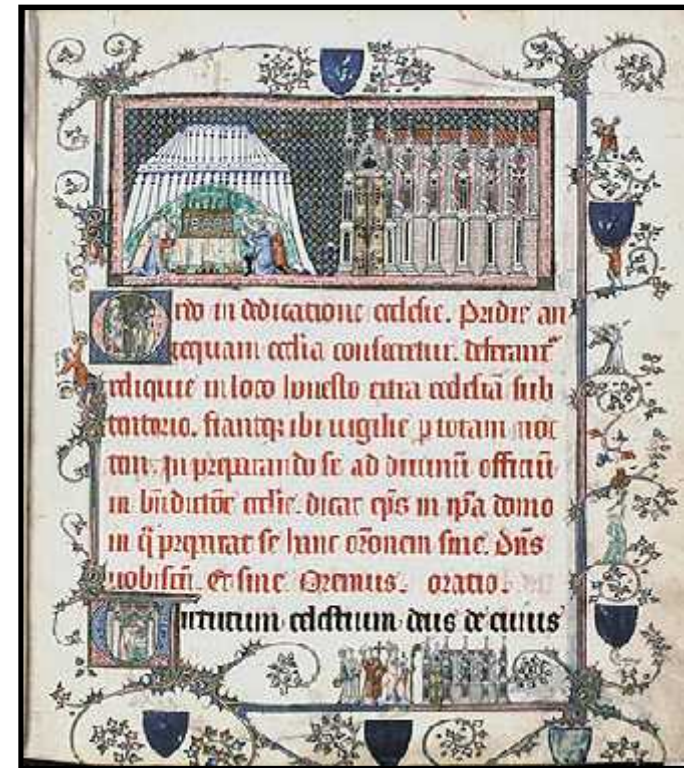 Ordo in dedicatione ecclesie. Pridie an
tequam ecclia consecretur. deferant᷑
reliquie in loco honesto extra ecclesiã sub
tentorio. fiantqꝫ ibi uigilie ꝑ totam noc
tem. In preparando se ad diuinũ officiũ
in bñdictõe ecclie. dicat ep̃s in ip̃a domo
in q̃ preparat se hanc or̃onem sine. Dñs
uobiscũ. Et sine Oremus. oratio.
Uirtutum celestium deus de cuius